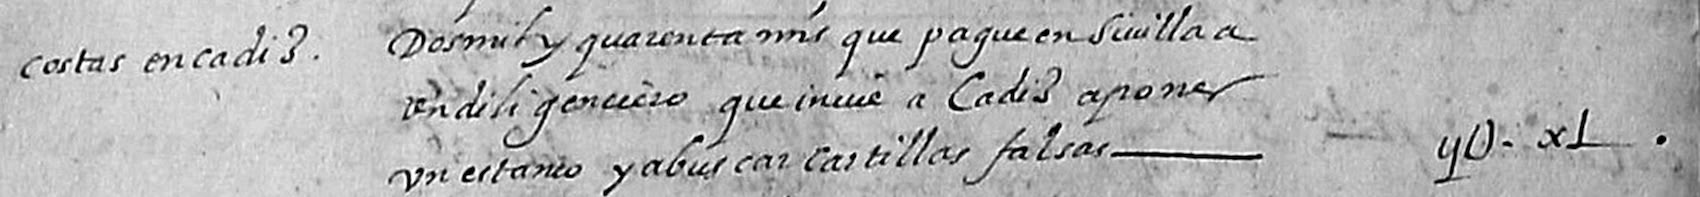 costas en cadiz.
Dos mil y quarenta mrs que pague en Siuilla a
un diligenciero que inuie a Cadiz a poner
vn estanco y a buscar cartillas falsas
ijU. xl.